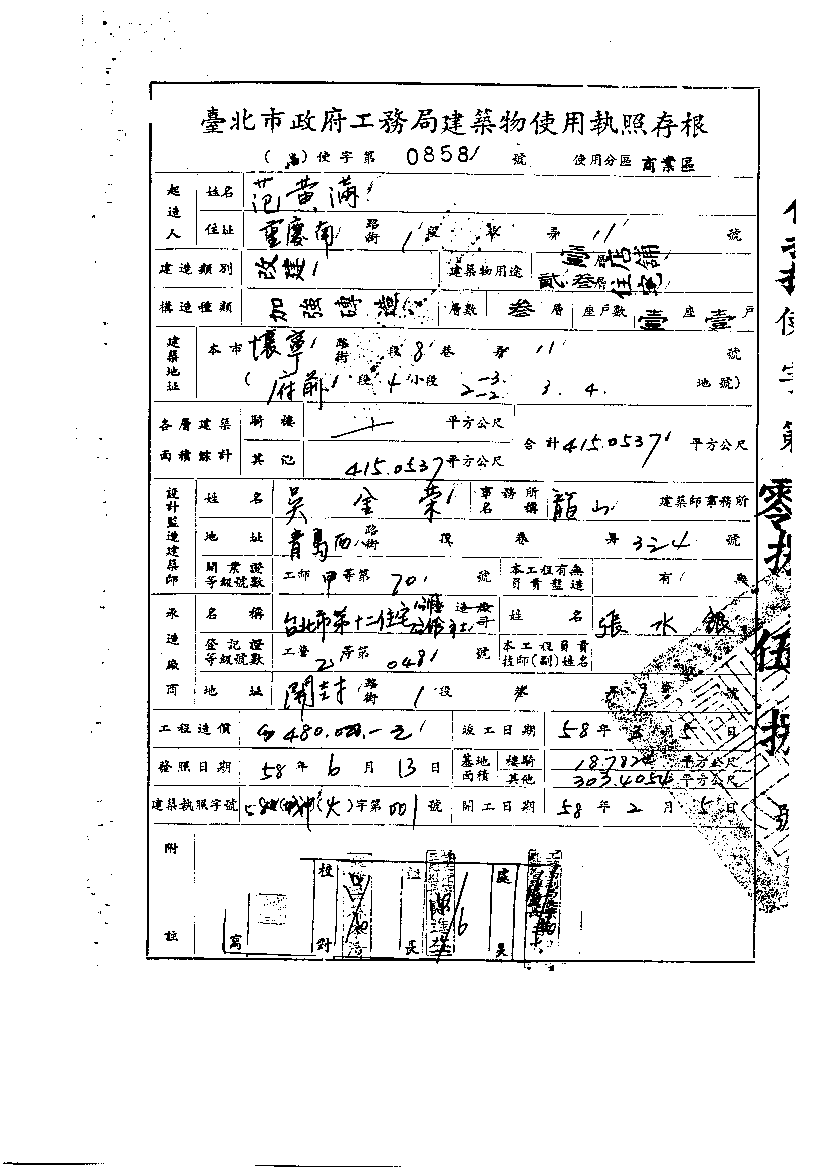 臺北市政府工務局建築物使用執照存根
( ) 使字第 0858 號 使用分區 商業區
起造人 姓名 范黃滿
住址 重慶南 路街 1 段 巷 弄 11 號
建造類別 改建 建築物用途 店舖 貳叁層住宅
構造種類 加強磚造 層數 叁 層 座戶數 壹 座 壹 戶
建築地址 本市 懷寧 路街 段 8 巷 弄 11 號
( 府前 段 4 小段 2-3 2-2 3. 4. 地號)
各層建築面積總計 騎樓 平方公尺 合計 415.0537 平方公尺
其他 415.0537 平方公尺
設計監造建築師 姓名 吳金榮 事務所名稱 龍山 建築師事務所
地址 青島西 路街 段 巷 弄 324 號
開業證等級號數 工師 甲 等第 701 號 本工程有無負責監造 有 無
承造廠商 名稱 台北市第十二住宅公用合作社 姓名 張水銀
登記證等級號數 工營 乙 等第 0481 號 本工程負責技師(副)姓名
地址 開封 路街 1 段 巷 弄 號
工程造價 480,020.-元 竣工日期 58 年 月 5 日
發照日期 58 年 6 月 13 日 基地面積 騎樓 18.7824 平方公尺
其他 303.4054 平方公尺
建築執照字號 字第 001 號 開工日期 58 年 2 月 5 日
附註
校對 股長 處長
使字第零捌伍捌 號